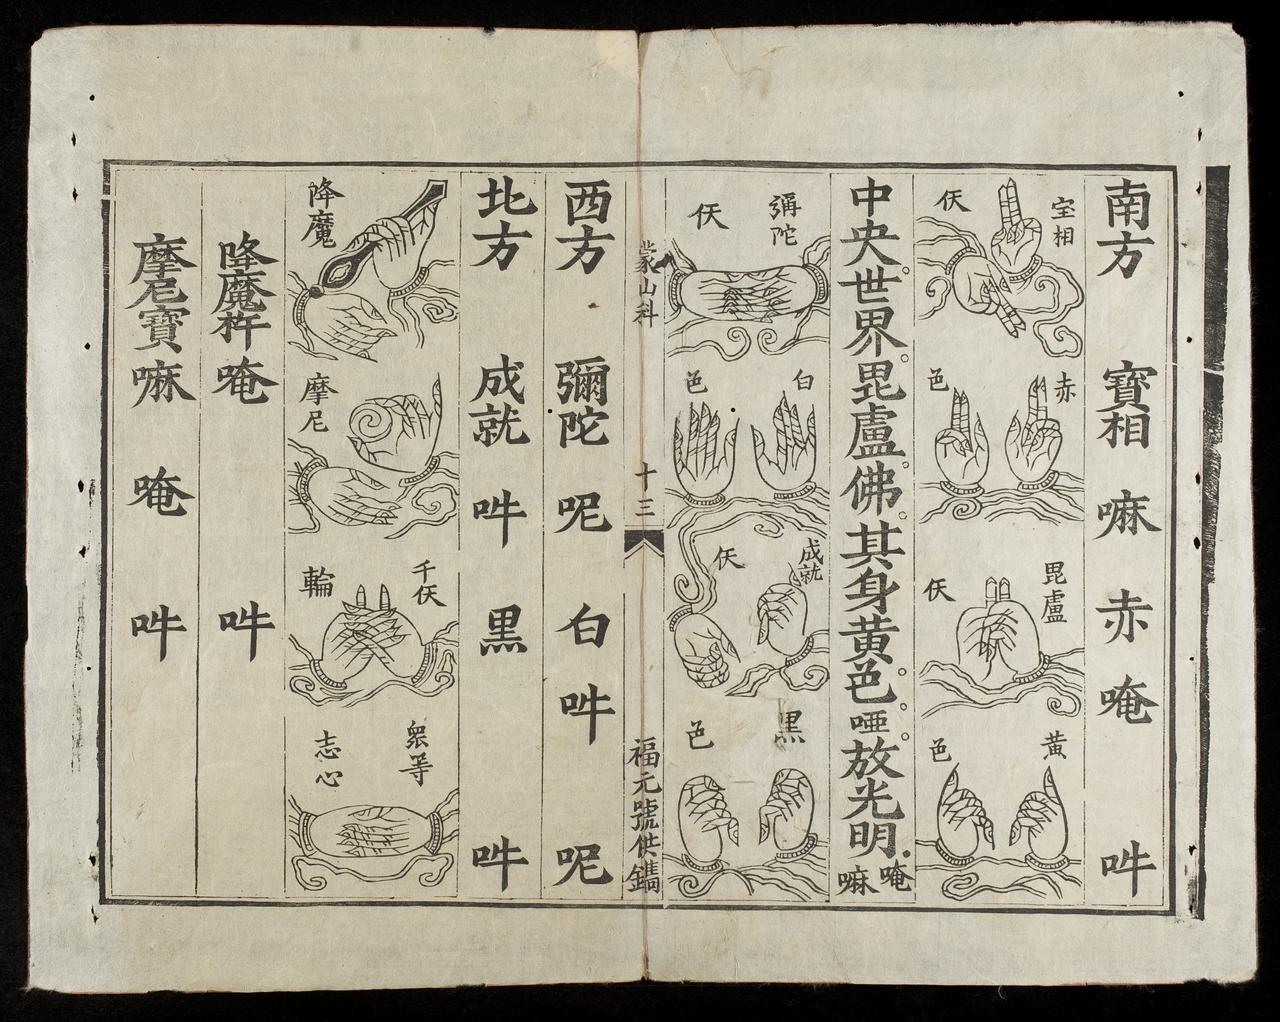 南方 寶相 嘛 赤 唵 吽
宝相 仸
赤 色
毘盧 仸
黃 色
中央世界。毘盧佛。其身黃色。㖶。放光明。唵嘛
彌陀 仸
白 色
成就 仸
黑 色
蒙山科 十三 福元號供鐫
西方 彌陀 呢 白 吽 呢
北方 成就 吽 黑 吽
降魔
摩尼
千仸 輪
眾等 志心
降魔杵 唵 吽
摩尼寶 嘛 唵 吽